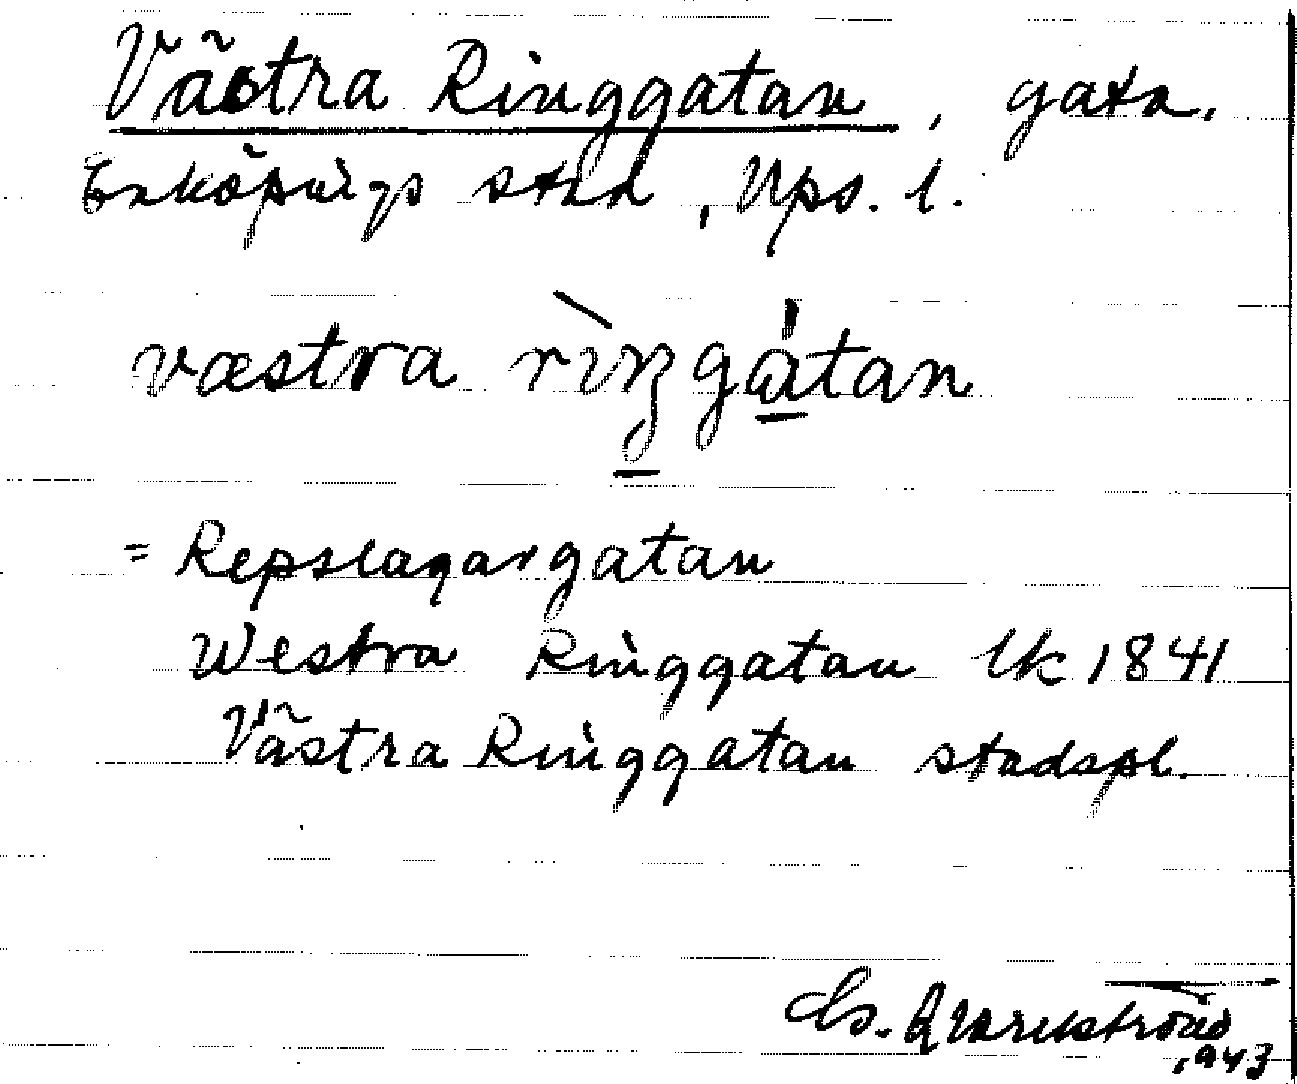 Västra Ringgatan, gata.
Enköpings stad, Ups. l.
væstra rìŋgátan
= Repslagargatan
Westra Ringgatan lk 1841
Västra Ringgatan stadspl.
1943